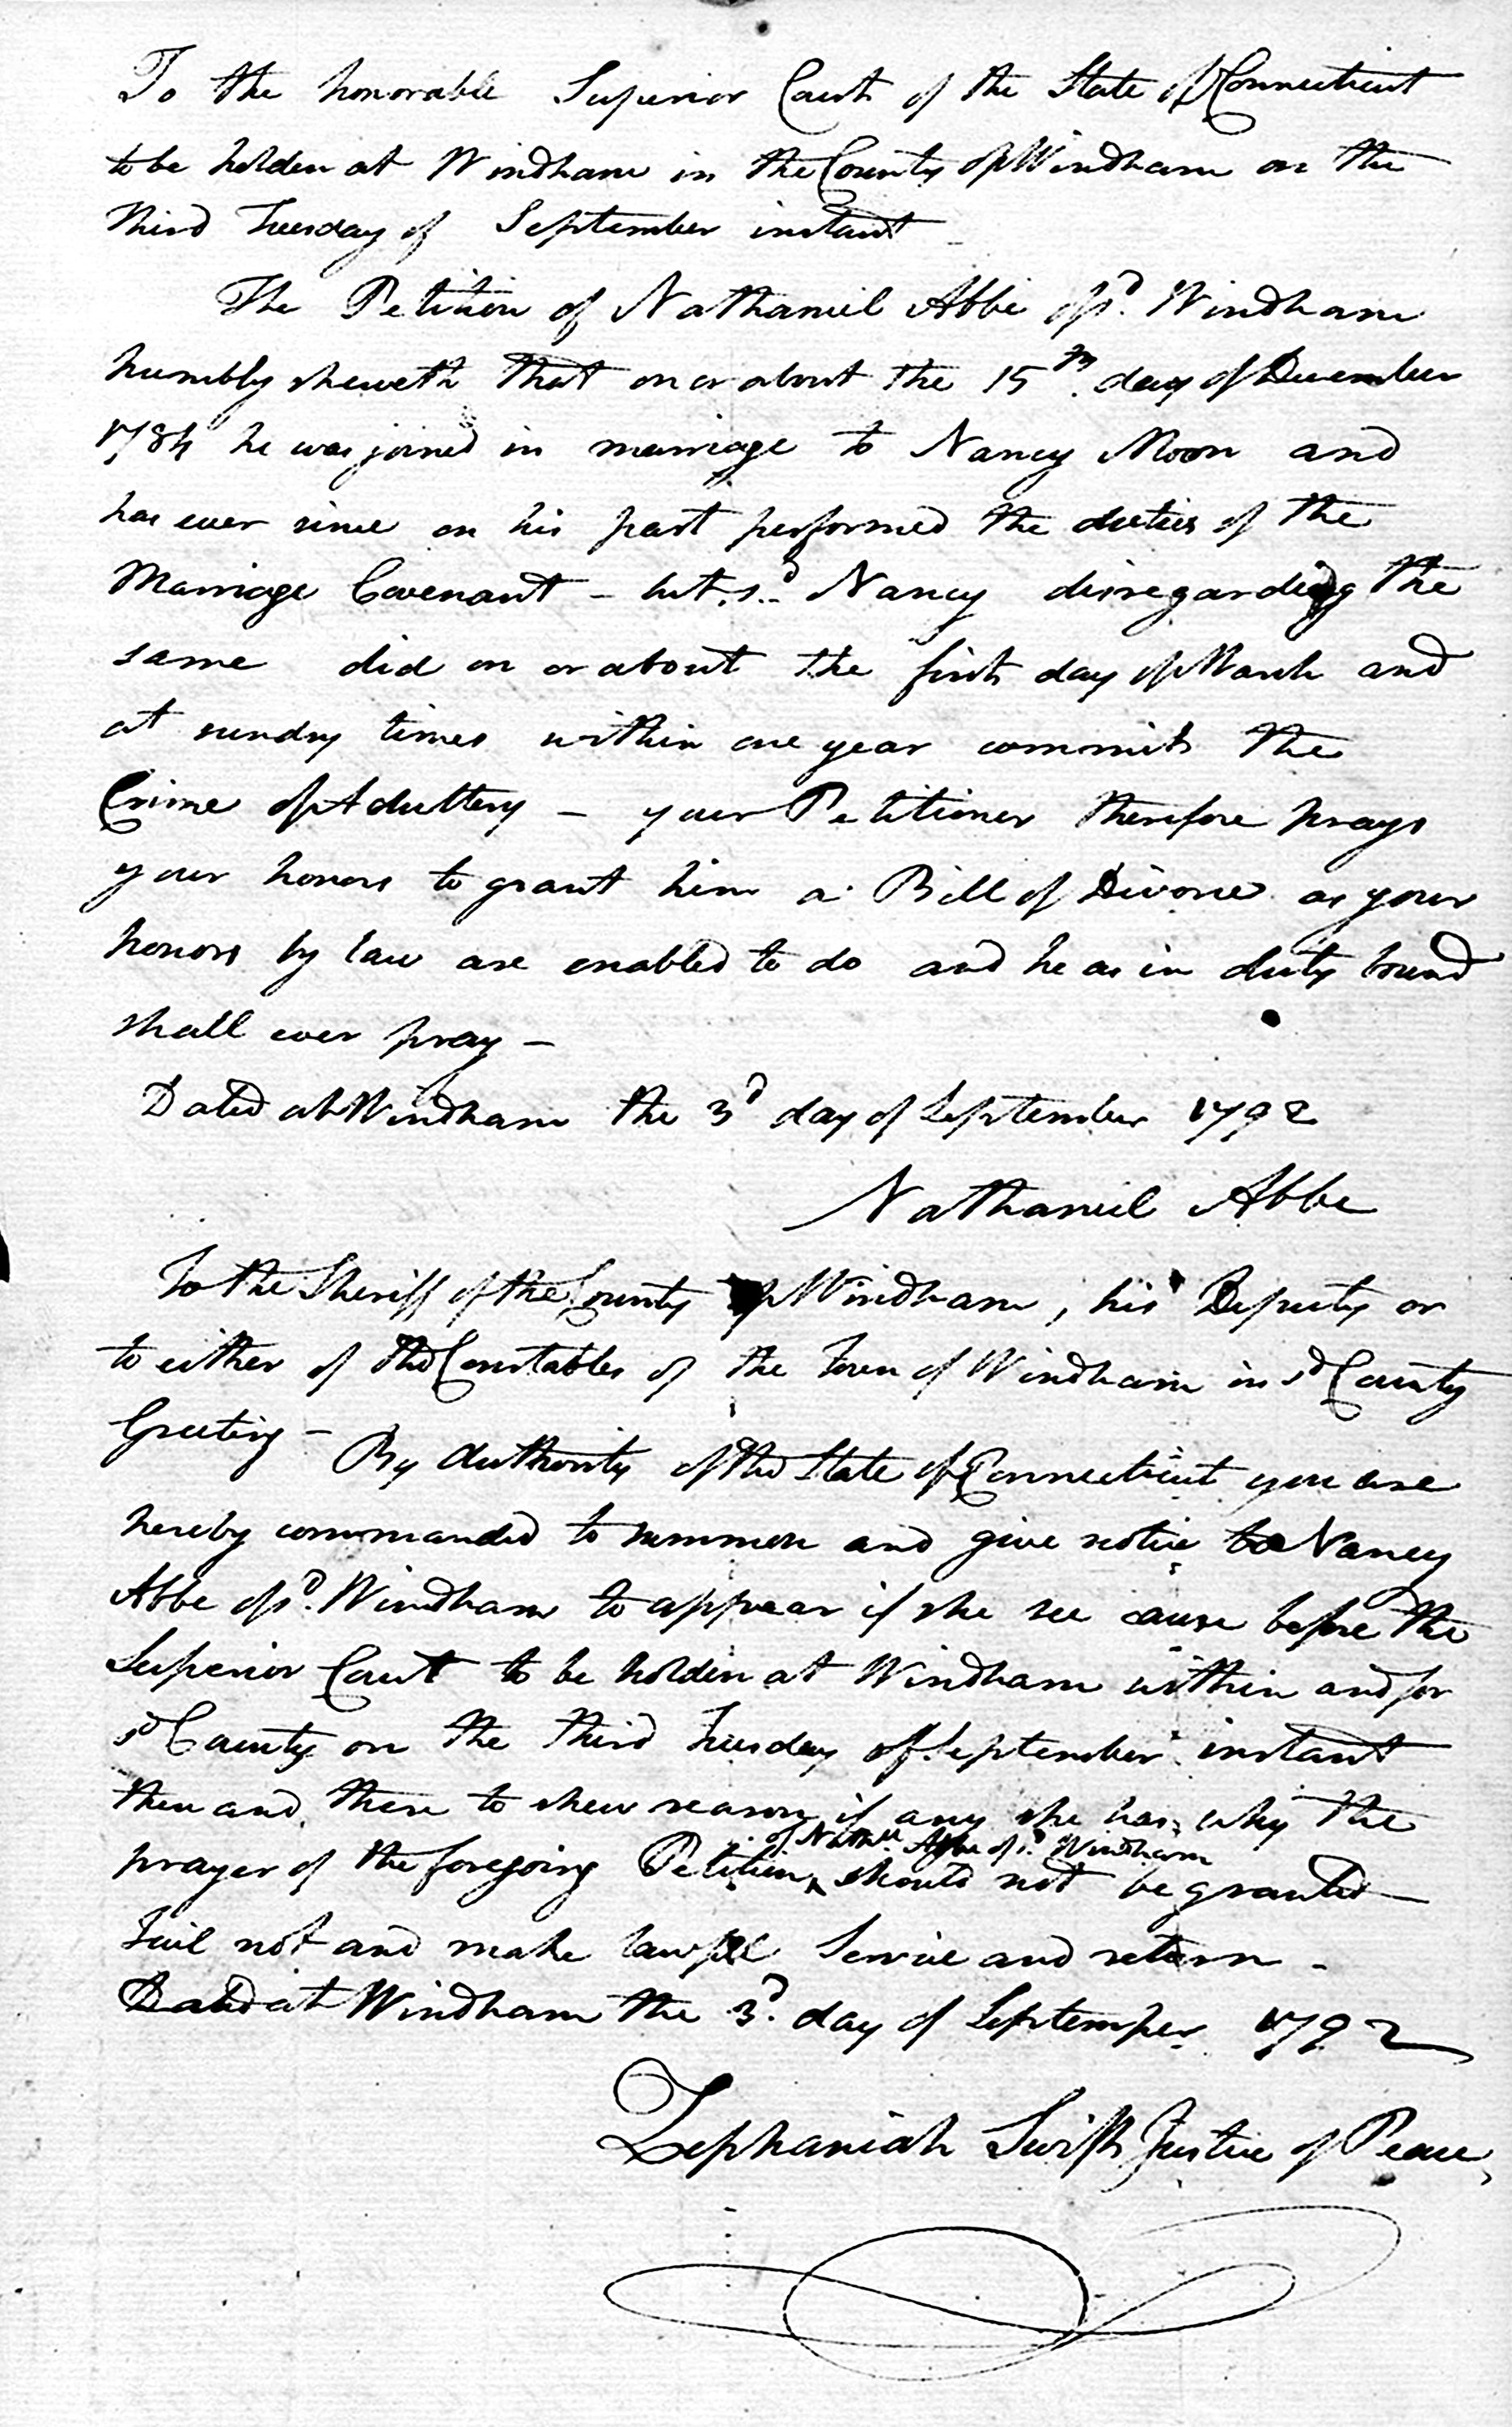 To the honorable Superior Court of the State of Connecticut
to be holden at Windham in the County of Windham on the
third Tuesday of September instant
The Petition of Nathaniel Abbe of sd. Windham
humbly sheweth that on or about the 15th. day of December
1784 he was joined in marriage to Nancy Moon and
has ever since on his part performed the duties of the
Marriage Covenant – but sd. Nancy disregarding the
same did on or about the first day of March and
at sundry times within one year commit the
Crime of Adultery – your Petitioner therefore prays
your honors to grant him a Bill of Divorce as your
honors by law are enabled to do and he as in duty bound
shall ever pray –
Dated at Windham the 3d day of September 1792
Nathaniel Abbe
To the Sheriff of the County of Windham, his Deputy or
to either of the Constables of the Town of Windham in sd County
Greeting – By Authority of the State of Connecticut you are
hereby commanded to summon and give notice to Nancy
Abbe of sd. Windham to appear if she see cause before the
Superior Court to be holden at Windham within and for
sd County on the third Tuesday of September instant
then and there to shew reason if any she has, why the
of Nathll. Abbe of sd. Windham
prayer of the foregoing Petition ^ should not be granted
Fail not and make lawful Service and return –
Dated at Windham the 3d. day of September 1792
Zephaniah Swift Justice of Peace,